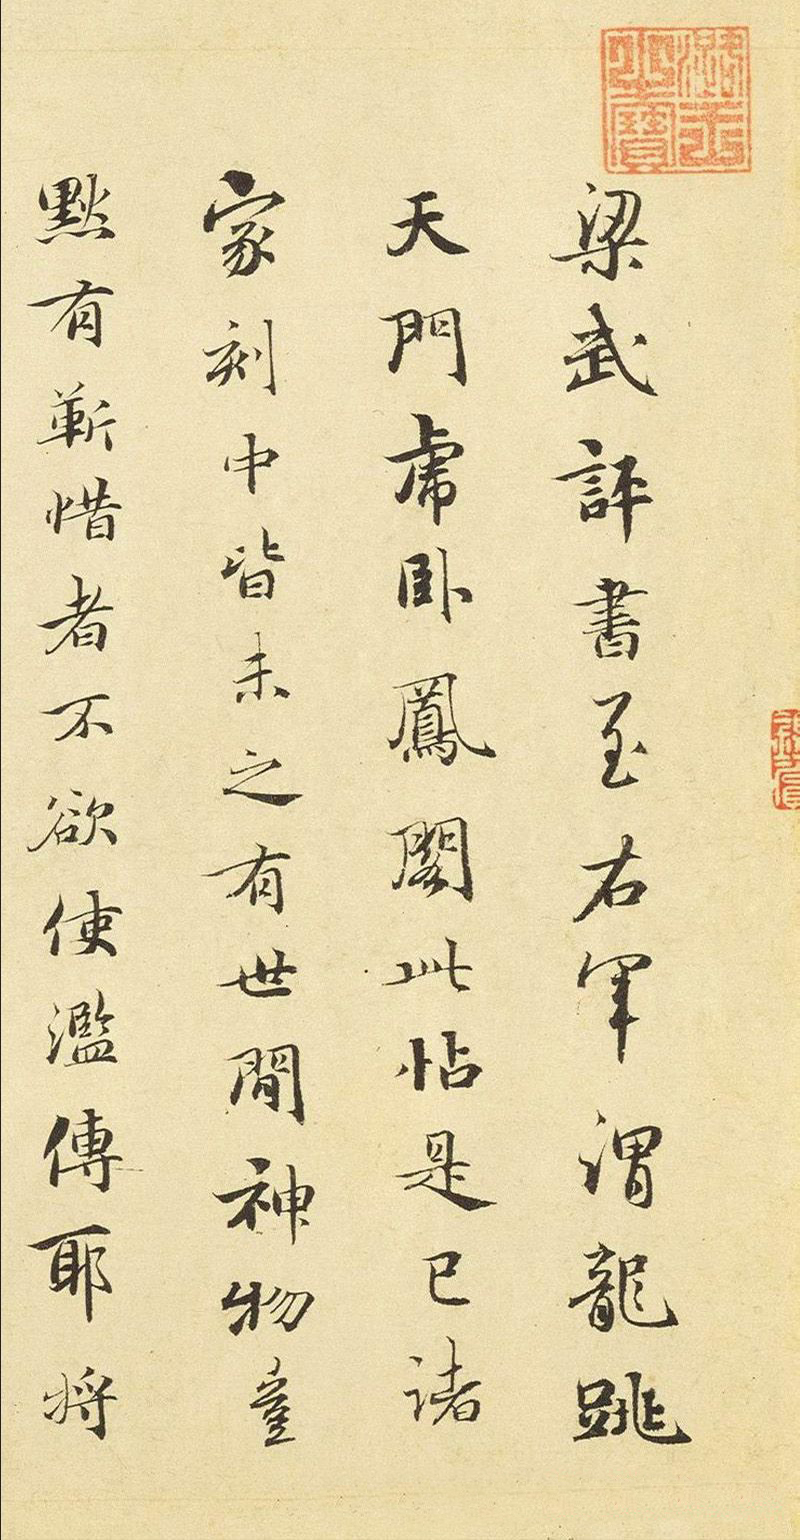 梁武評書至右軍謂龍跳
天門虎卧鳳閣此帖是已諸
家刻中皆未之有世間神物豈
默有靳惜者不欲使濫傳耶將